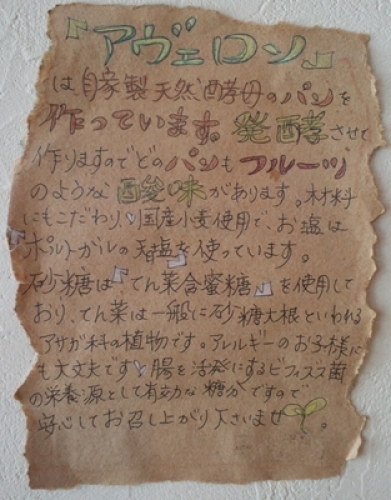 『アヴェロン』
は自家製天然酵母のパンを
作っています。発酵させて
作りますのでどのパンもフルーツ
のような酸味があります。材料
にもこだわり、国産小麦使用で、お塩は
ポルトガルの天塩を使っています。
砂糖は『てん菜含蜜糖』を使用して
おり、てん菜は一般に砂糖大根といわれる
アカザ科の植物です。アレルギーのお子様に
も大丈夫です。腸を活発にするビフィズス菌
の栄養源として有効な糖分ですので
安心してお召し上がり下さいませ。